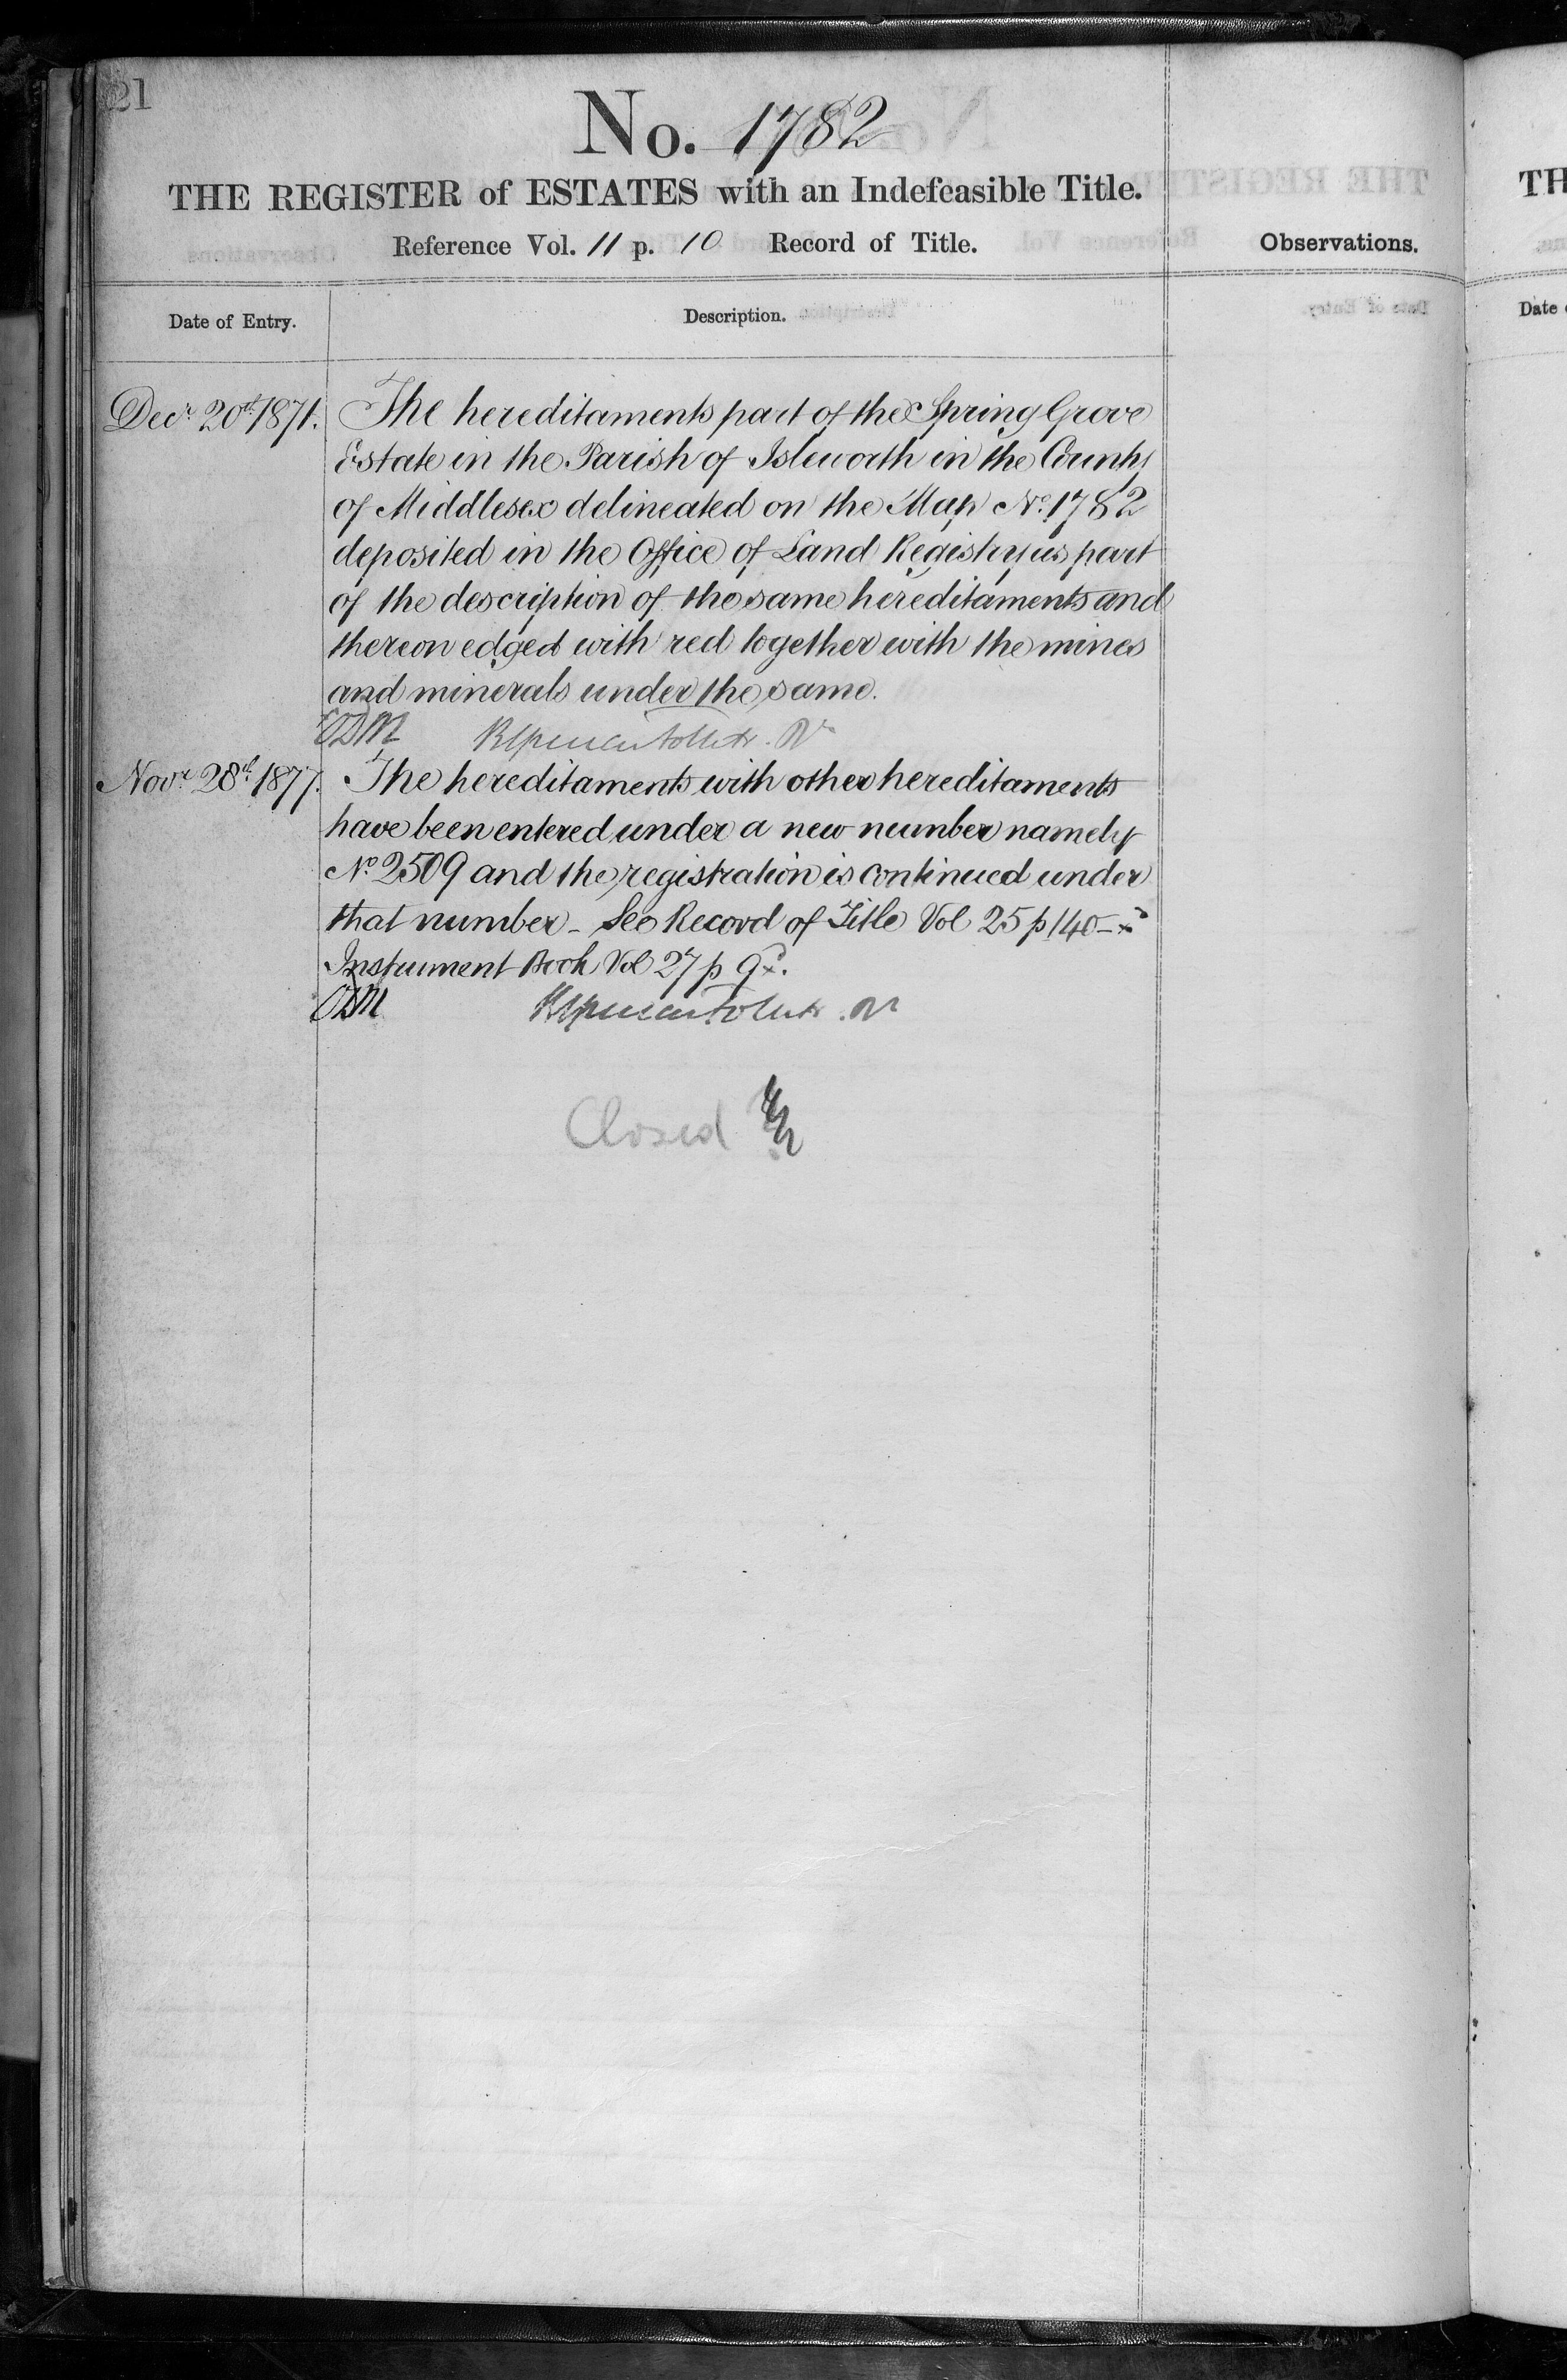 21
No. 1782
THE REGISTER of ESTATES with an Indefeasible Title.
Reference Vol. 11 p. 10 Record of Title.
Observations.
Date of Entry.
Description.
Decr 20th 1871.
The hereditaments part of the Spring Grove
Estate in the Parish of Isleworth in the County
of Middlesex delineated on the Map No. 1782
deposited in the Office of Land Registry as part
of the description of the same hereditaments and
thereon edged with red together with the mines
and minerals under the same.
Novr 28th 1877.
The hereditaments with other hereditaments
have been entered under a new number namely
No. 2509 and the registration is continued under
that number - See Record of Title Vol 25 p 140 -
Instrument Book Vol 27 p 9
Closed
TH
Date